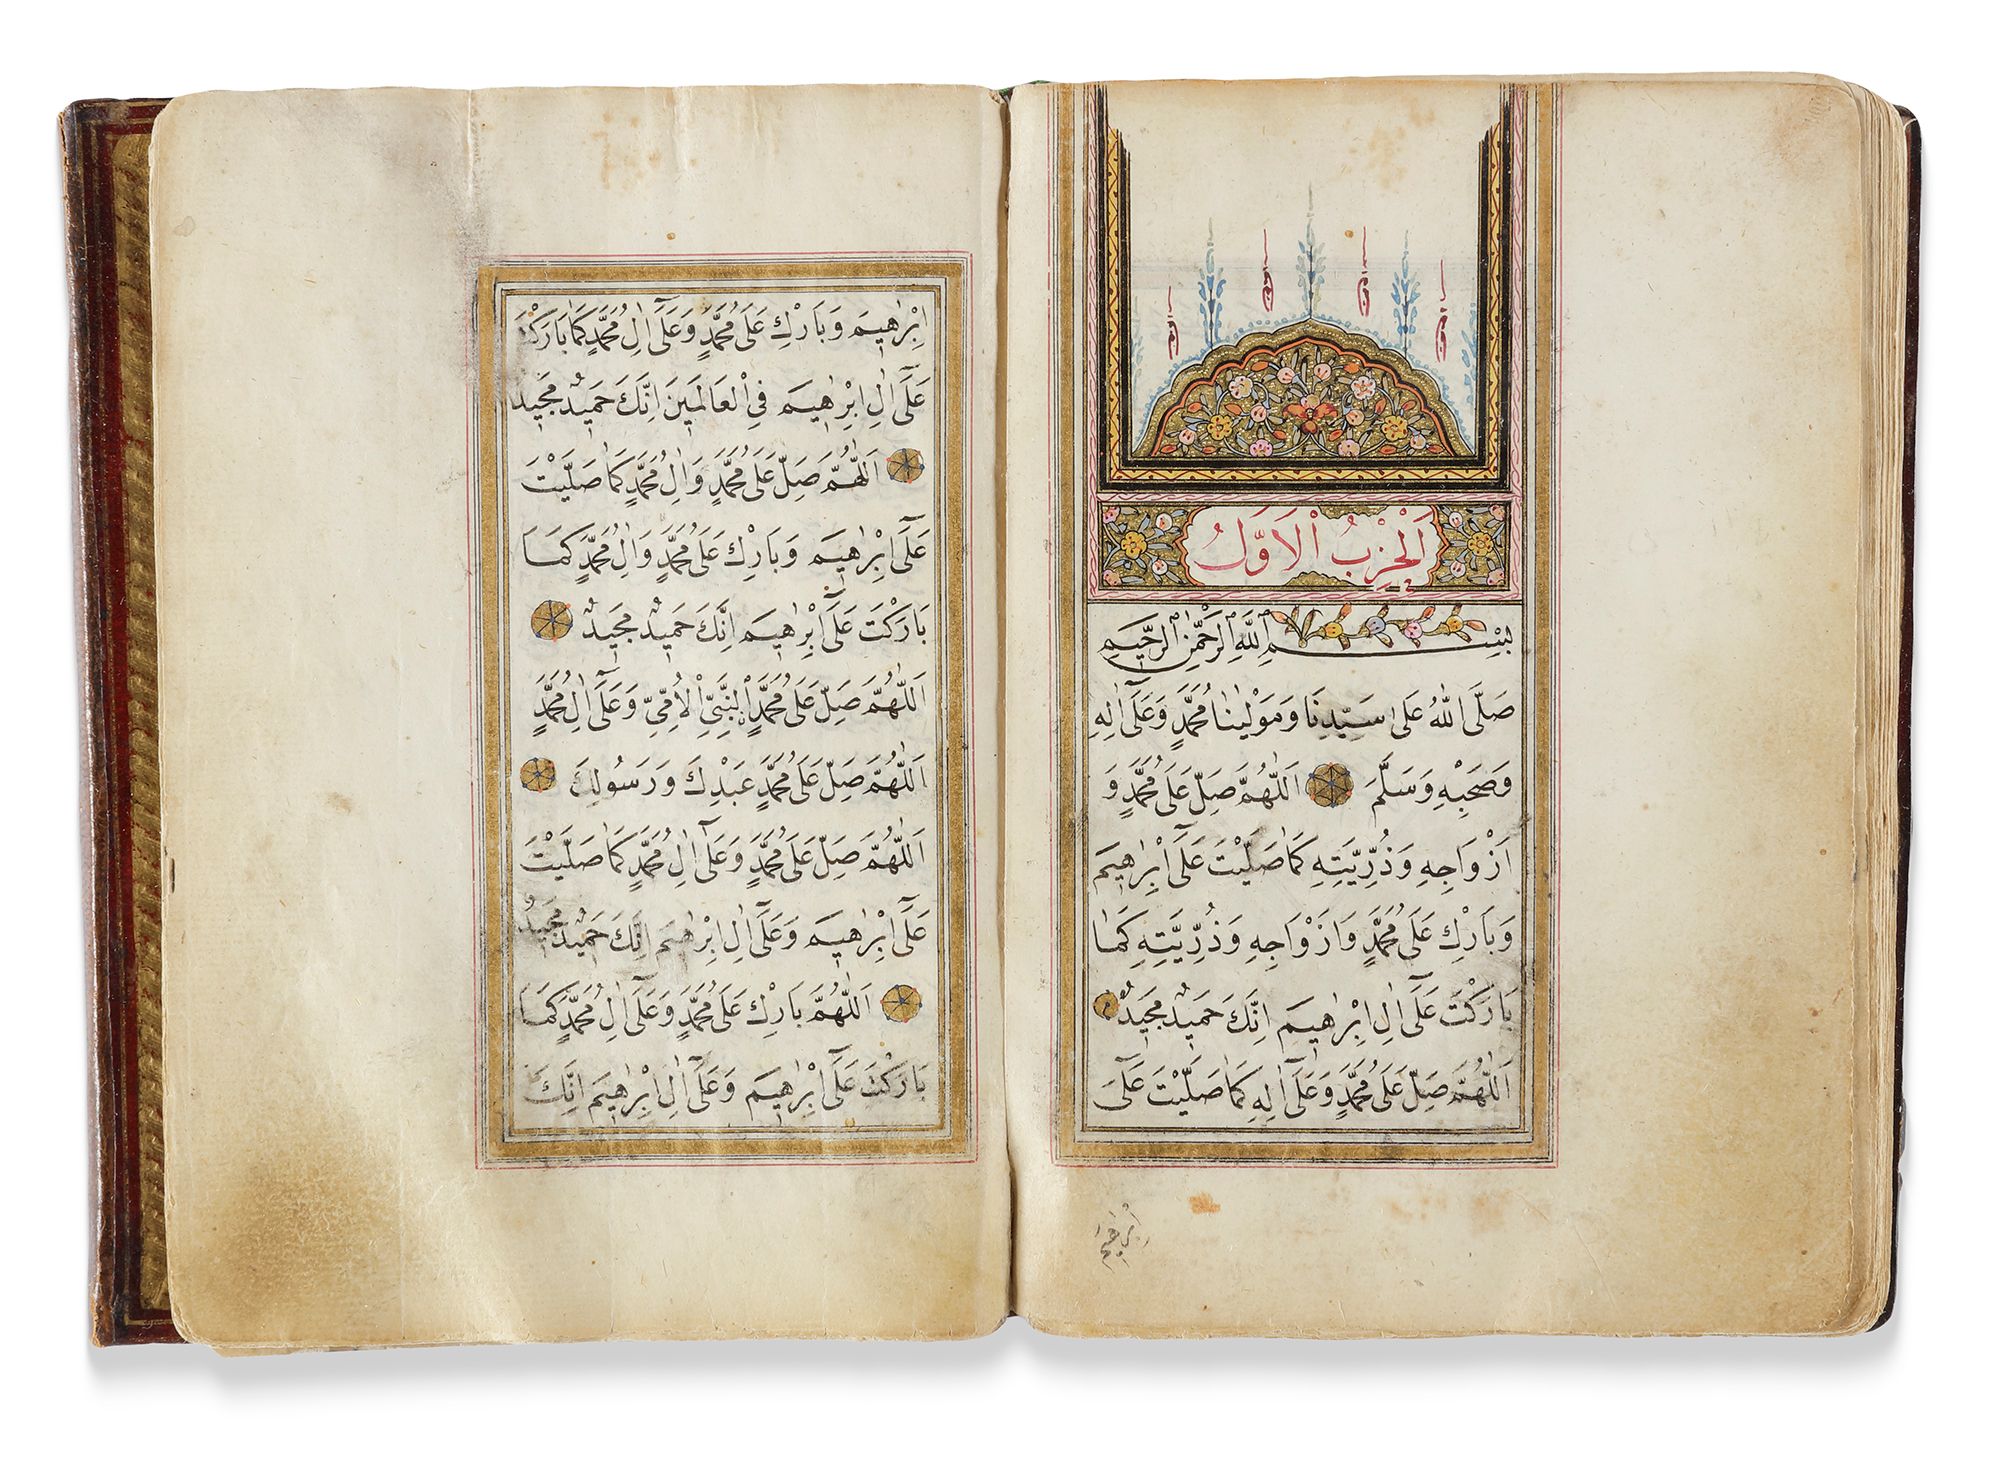 اَلْحِزْبُ الْاَوَّلُ
بِسْمِ اللّٰهِ الرَّحْمٰنِ الرَّحٖيمِ
صَلَّى اللّٰهُ عَلٰى سَيِّدِنَا وَمَوْلٰينَا مُحَمَّدٍ وَعَلٰٓى اٰلِهٖ
وَصَحْبِهٖ وَسَلَّمَ اَللّٰهُمَّ صَلِّ عَلٰى مُحَمَّدٍ وَ
اَزْوَاجِهٖ وَذُرِّيَّتِهٖ كَمَا صَلَّيْتَ عَلٰٓى اِبْرٰهٖيمَ
وَبَارِكْ عَلٰى مُحَمَّدٍ وَاَزْوَاجِهٖ وَذُرِّيَّتِهٖ كَمَا
بَارَكْتَ عَلٰٓى اٰلِ اِبْرٰهٖيمَ اِنَّكَ حَمٖيدٌ مَجٖيدٌ
اَللّٰهُمَّ صَلِّ عَلٰى مُحَمَّدٍ وَعَلٰٓى اٰلِهٖ كَمَا صَلَّيْتَ عَلٰٓى
اِبْرٰهٖيمَ
اِبْرٰهٖيمَ وَبَارِكْ عَلٰى مُحَمَّدٍ وَعَلٰٓى اٰلِ مُحَمَّدٍ كَمَا بَارَكْتَ
عَلٰٓى اٰلِ اِبْرٰهٖيمَ فِى الْعَالَمٖينَ اِنَّكَ حَمٖيدٌ مَجٖيدٌ
اَللّٰهُمَّ صَلِّ عَلٰى مُحَمَّدٍ وَاٰلِ مُحَمَّدٍ كَمَا صَلَّيْتَ
عَلٰٓى اِبْرٰهٖيمَ وَبَارِكْ عَلٰى مُحَمَّدٍ وَاٰلِ مُحَمَّدٍ كَمَا
بَارَكْتَ عَلٰٓى اِبْرٰهٖيمَ اِنَّكَ حَمٖيدٌ مَجٖيدٌ
اَللّٰهُمَّ صَلِّ عَلٰى مُحَمَّدٍ النَّبِىِّ الْاُمِّىِّ وَعَلٰٓى اٰلِ مُحَمَّدٍ
اَللّٰهُمَّ صَلِّ عَلٰى مُحَمَّدٍ عَبْدِكَ وَرَسُولِكَ
اَللّٰهُمَّ صَلِّ عَلٰى مُحَمَّدٍ وَعَلٰٓى اٰلِ مُحَمَّدٍ كَمَا صَلَّيْتَ
عَلٰٓى اِبْرٰهٖيمَ وَعَلٰٓى اٰلِ اِبْرٰهٖيمَ اِنَّكَ حَمٖيدٌ مَجٖيدٌ
اَللّٰهُمَّ بَارِكْ عَلٰى مُحَمَّدٍ وَعَلٰٓى اٰلِ مُحَمَّدٍ كَمَا
بَارَكْتَ عَلٰٓى اِبْرٰهٖيمَ وَعَلٰٓى اٰلِ اِبْرٰهٖيمَ اِنَّكَ